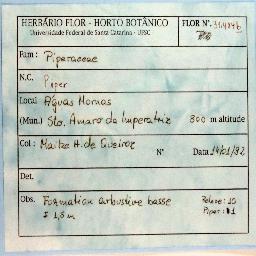 HERBÁRIO FLOR - HORTO BOTÂNICO
Universidade Federal de Santa Catarina - UFSC
FLOR Nº.
Fam: Piperaceae
N.C.
Piper
Local Águas Mornas
(Mun.) Sto. Amaro da Imperatriz 800 m altitude
Col: Maike H. de Queiroz Nº Data 14/01/92
Det.
Obs. Formation arbustive basse
± 1,5 m
Releve: 10
Piper: 1